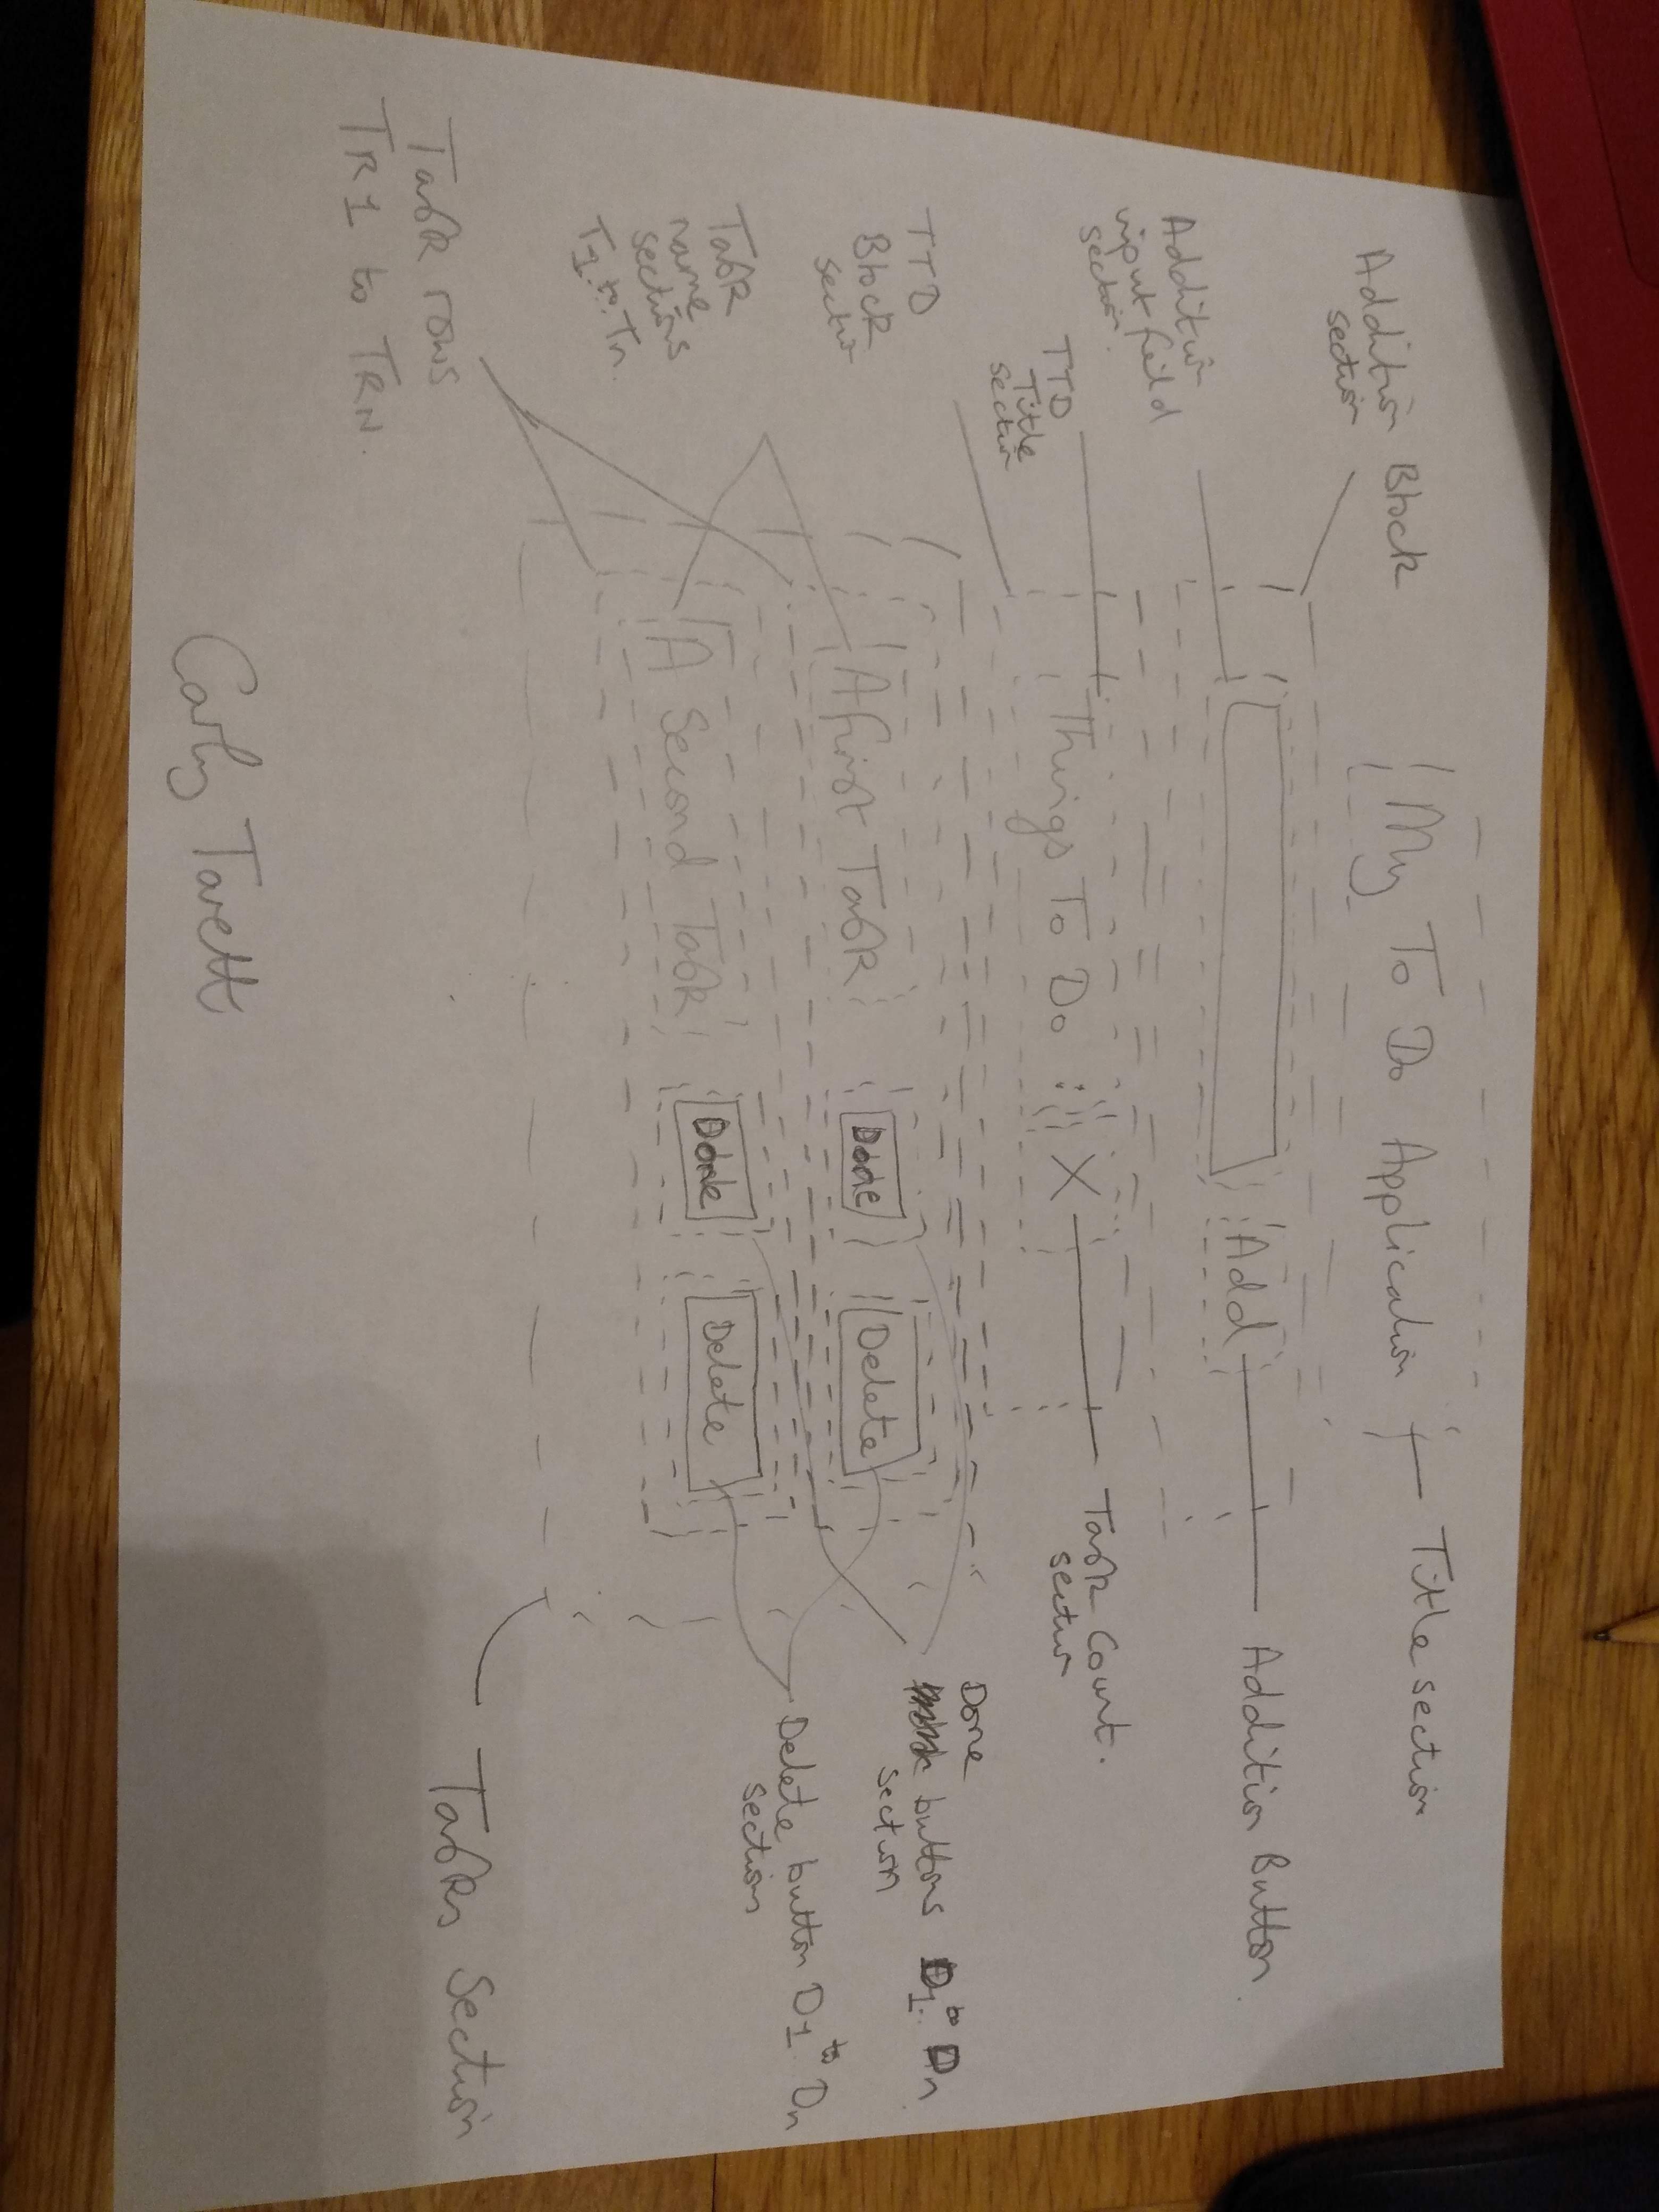 My To Do Application
Title section
Addition Block
section
Addition
input field
section.
Add
Addition Button.
TTD
Title
section
Things To Do : X
Task Count.
section
TTD
Block
section
Task
name
sections
T1 to Tn.
A first Task
Done
Delete
A Second Task
Done
Delete
Done
buttons D1 to Dn
section
Delete button D1 to Dn
section
Task rows
TR1 to TRN.
Tasks Section
Carly